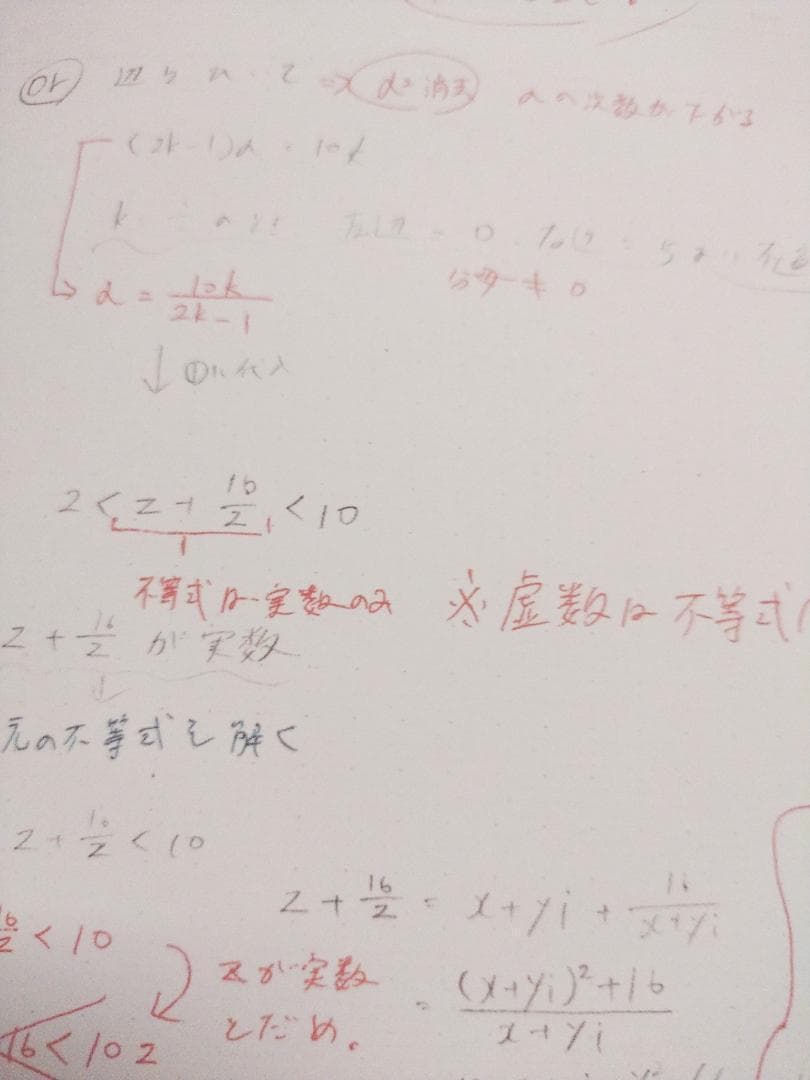 or 辺々 α消去 αの次数が下がる
(2k-1)α = 10k
k = のとき 左辺 = 0 右辺 = 5
α = 10k/(2k-1) 分母≠0
↓ ①に代入
2 < z + 16/z < 10
不等式は実数のみ ※虚数は不等式
z + 16/z が実数
↓
元の不等式を解く
z + 16/z < 10
z + 16/z = x+yi + 16/(x+yi)
16/z < 10
zが実数
= ((x+yi)²+16)/(x+yi)
とだめ。
16 < 10z